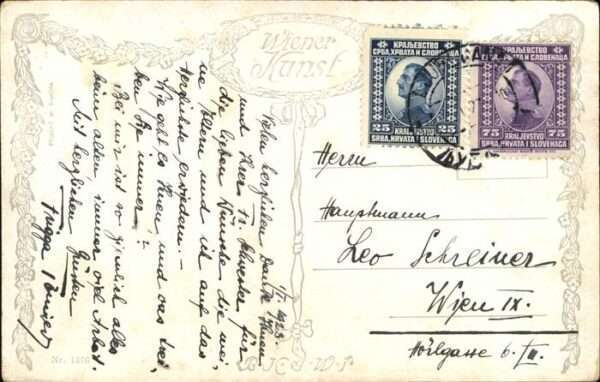 Wiener
Kunst
КРАЉЕВСТВО
СРБА, ХРВАТА И СЛОВЕНАЦА
25 25
KRALJEVSTVO
SRBA, HRVATA I SLOVENACA
КРАЉЕВСТВО
СРБА, ХРВАТА И СЛОВЕНАЦА
75 75
KRALJEVSTVO
SRBA, HRVATA I SLOVENACA
1923.
Vielen herzlichen Dank Ihnen
und Ihrer Fr. Schwester für
die lieben Wünsche die mei
ne Eltern und ich auf das
erwiedern. –
Wie geht es Ihnen und was trei
ben Sie immer?
Bei mir ist so ziemlich alles
beim alten immer viel Arbeit.
Mit herzlichen Grüßen
Herrn
Hauptmann
Leo Schreiner
Wien IX.
Hörlgasse 6.
B.K.W.I.
Nr.